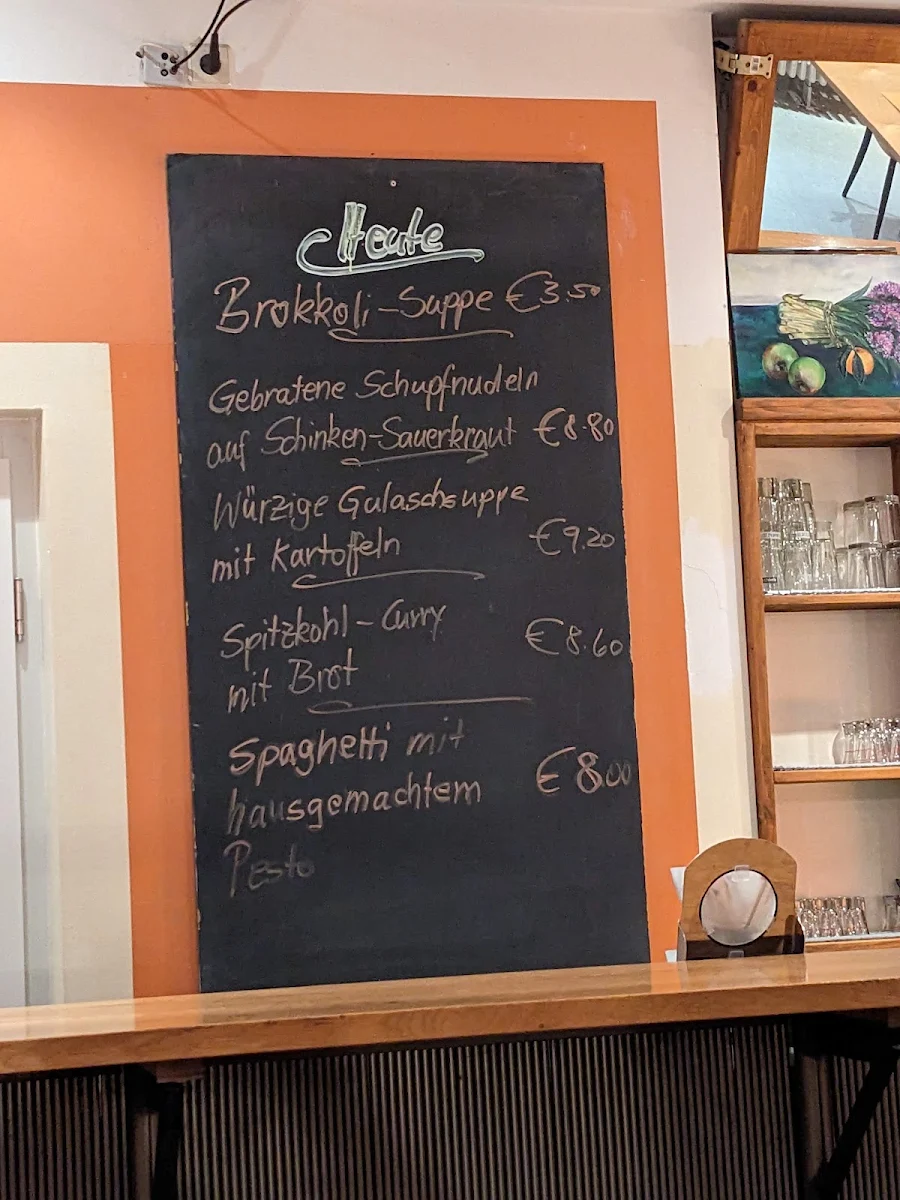 Heute
Brokkoli-Suppe €3.50
Gebratene Schupfnudeln
auf Schinken-Sauerkraut €8.80
Würzige Gulaschsuppe
mit Kartoffeln €9.20
Spitzkohl-Curry
mit Brot €8.60
Spaghetti mit
hausgemachtem €8.00
Pesto